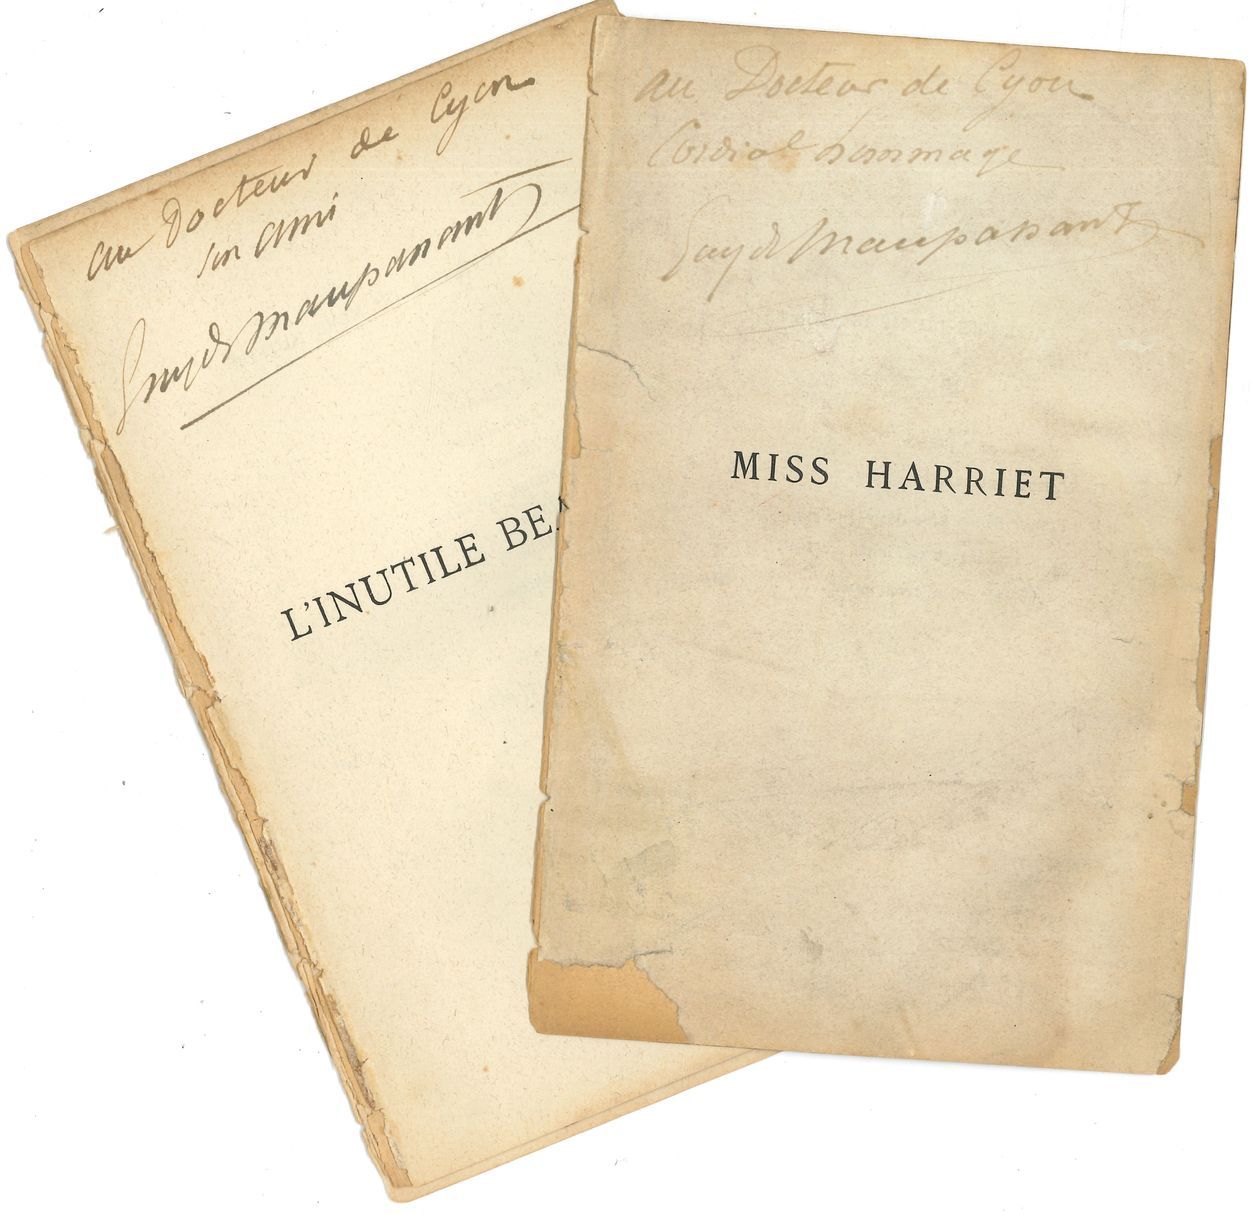 au Docteur de Cyon
son ami
Guy de Maupassant
L'INUTILE BEA
au Docteur de Cyon
Cordial hommage
Guy de Maupassant
MISS HARRIET